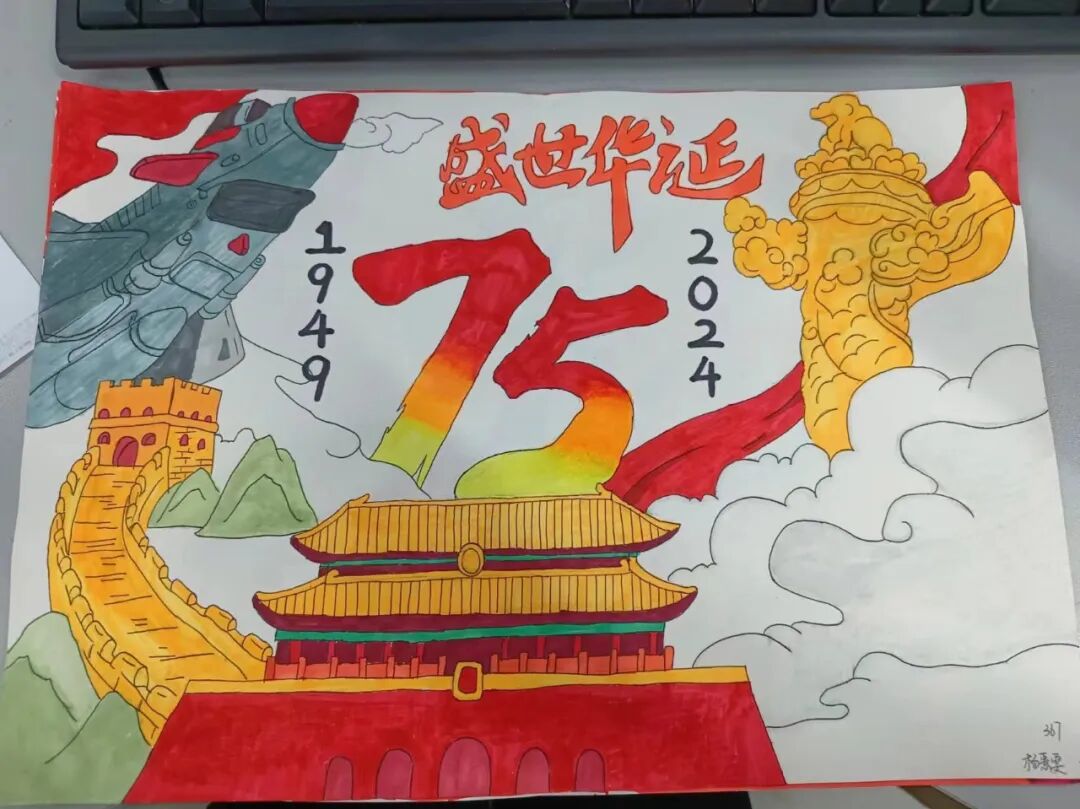 盛世华诞
1949
75
2024
367